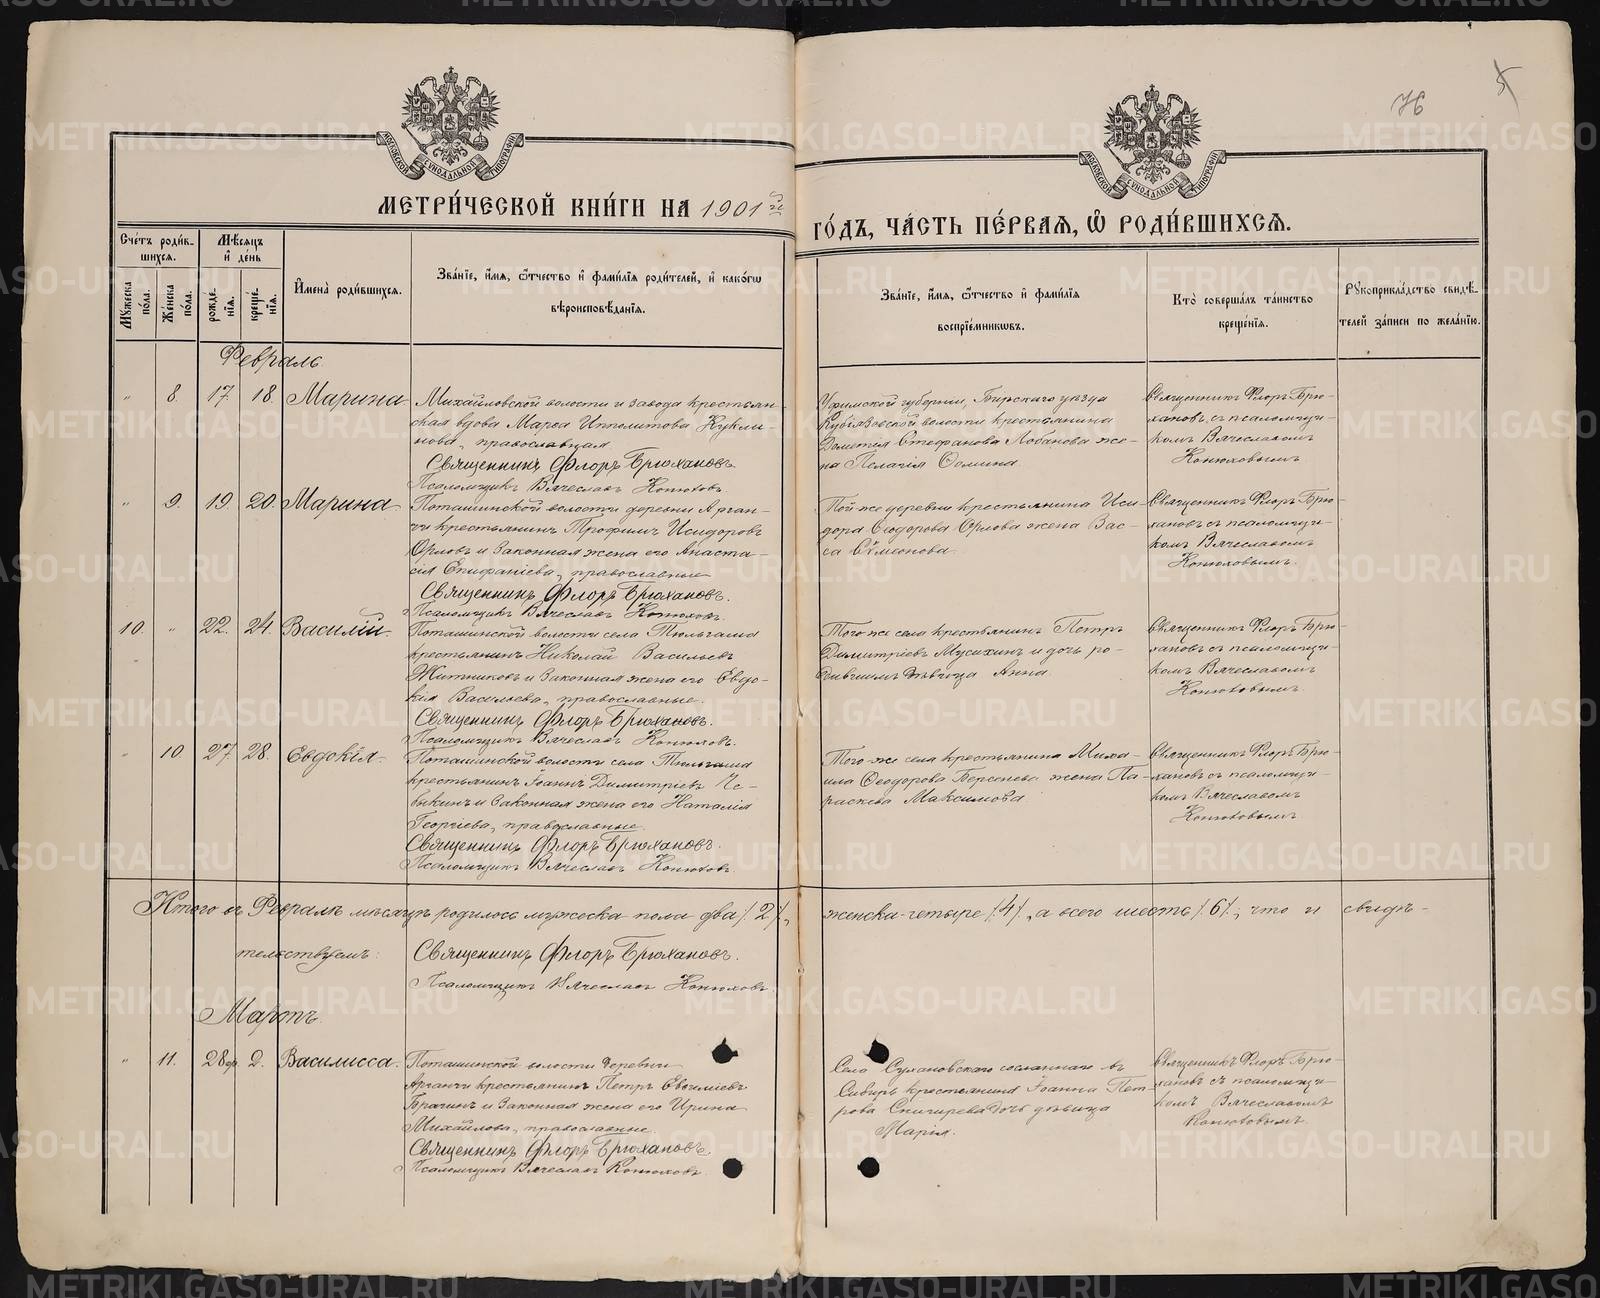 76
МЕТРИ́ЧЕСКОЙ КНИ́ГИ НА 1901й ГО́ДЪ, ЧА́СТЬ ПЕ́РВАѦ, Ѡ҆ РОДИ́ВШИХСѦ.
Сче́тъ роди́в-
шихсѧ.
Мꙋжеска по́ла.
Же́нска по́ла.
Мѣ́сѧцъ
и҆ де́нь
рожде́-
нїѧ.
креще́-
нїѧ.
И҆мена̀ роди́вшихсѧ.
Зва́нїе, и҆́мѧ, ѻ҆́тчество и҆ фами́лїѧ роди́телей, и҆ како́гѡ
вѣроисповѣ́данїѧ.
Зва́нїе, и҆́мѧ, ѻ҆́тчество и҆ фами́лїѧ
воспрїе́мникѡвъ.
Кто̀ соверша́лъ та́инство
креще́нїѧ.
Рꙋкоприкла́дство свидѣ́-
телей за́писи по жела́нїю.
Февраль.
" 8. 17. 18. Марина
Михайловской волости и завода крестьян-
ская вдова Марѳа Ипполитова Кукли-
нова, православная
Священникъ Флоръ Брюхановъ.
Псаломщикъ Вячеславъ Конюховъ.
Уфимской губернии, Бирскаго уѣзда
волости крестьянина
Стефанова Лобанова же-
на Пелагія Ѳомина.
Священникъ Флоръ Брю-
хановъ, съ псаломщи-
комъ Вячеславомъ
Конюховымъ
" 9. 19. 20. Марина
Поташинской волости деревни Арган-
чи крестьянинъ Трофимъ Исидоровъ
Орловъ и законная жена его Анаста-
сія Епифаніева, православные
Священникъ Флоръ Брюхановъ.
Псаломщикъ Вячеславъ Конюховъ.
Той же деревни крестьянина Иси-
дора Ѳеодорова Орлова жена Вас-
са Симеонова.
Священникъ Флоръ Брю-
хановъ съ псаломщи-
комъ Вячеславомъ
Конюховымъ.
10. " 22. 24. Василій.
Поташинской волости села Тюльгаша
крестьянинъ Николай Васильевъ
Житниковъ и законная жена его Евдо-
кія Васильева, православные.
Священникъ Флоръ Брюхановъ.
Псаломщикъ Вячеславъ Конюховъ.
Того же села крестьянинъ Петръ
Димитріевъ Мусихинъ и дочь ро-
дившимъ дѣвица Анна.
Священникъ Флоръ Брю-
хановъ съ псаломщи-
комъ Вячеславомъ
Конюховымъ.
" 10. 27. 28. Евдокія.
Поташинской волости села Тюльгаша
крестьянинъ Іоаннъ Димитріевъ Че-
выкинъ и законная жена его Наталія
Георгіева, православные.
Священникъ Флоръ Брюхановъ.
Псаломщикъ Вячеславъ Конюховъ.
Того же села крестьянина Миха-
ила Ѳеодорова Берсенева жена Па-
раскева Максимова
Священникъ Флоръ Брю-
хановъ съ псаломщи-
комъ Вячеславомъ
Конюховымъ
Итого въ Февралѣ мѣсяцѣ родилось мужеска пола два /2/, женска-четыре /4/, а всего шесть /6/; что и свидѣ-
тельствуемъ: Священникъ Флоръ Брюхановъ.
Псаломщикъ Вячеславъ Конюховъ.
Мартъ.
" 11. 28 фр. 2. Василисса.
Поташинской волости деревни
Арганчи крестьянинъ Петръ
Брагинъ и законная жена его Ирина
Михайлова, православные.
Священникъ Флоръ Брюхановъ.
Псаломщикъ Вячеславъ Конюховъ.
Села Сулановскаго сосланнаго въ
Сибирь крестьянина Іоанна Пет-
рова Снигирева дочь дѣвица
Марія.
Священникъ Флоръ Брю-
хановъ съ псаломщи-
комъ Вячеславомъ
Конюховымъ.
METRIKI.GASO-URAL.RU